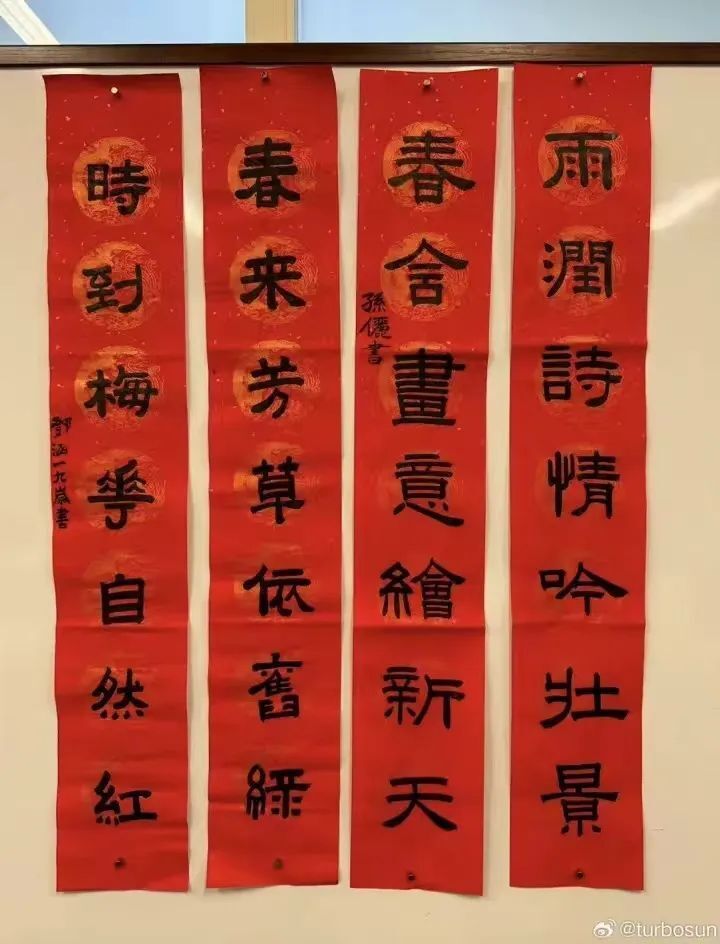 雨潤詩情吟壯景
春含畫意繪新天
孫儷書
春来芳草依舊綠
時到梅華自然紅
鄧涵一九歲書
@turbosun